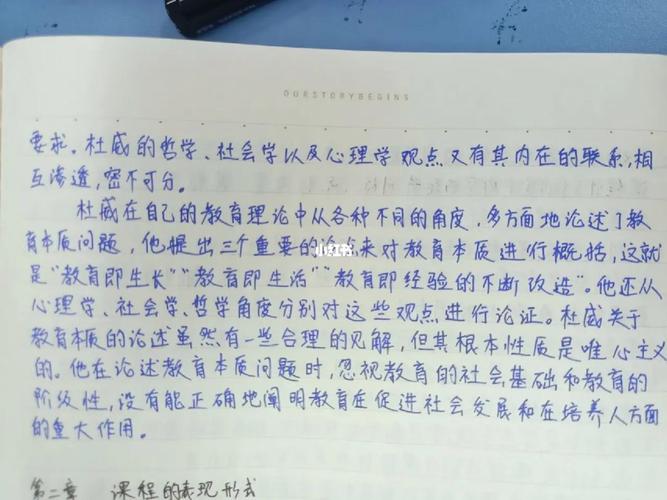 OURSTORYBEGINS
要求。杜威的哲学、社会学以及心理学观点又有其内在的联系,相
互渗透,密不可分。
杜威在自己的教育理论中从各种不同的角度,多方面地论述了教
育本质问题,他提出三个重要的论点来对教育本质进行概括,这就
小红书
是“教育即生长”“教育即生活”“教育即经验的不断改造”。他还从
心理学、社会学、哲学角度分别对这些观点进行论证。杜威关于
教育本质的论述虽然有一些合理的见解,但其根本性质是唯心主义
的。他在论述教育本质问题时,忽视教育的社会基础和教育的
阶级性,没有能正确地阐明教育在促进社会发展和在培养人方面
的重大作用。
第二章 课程的表现形式